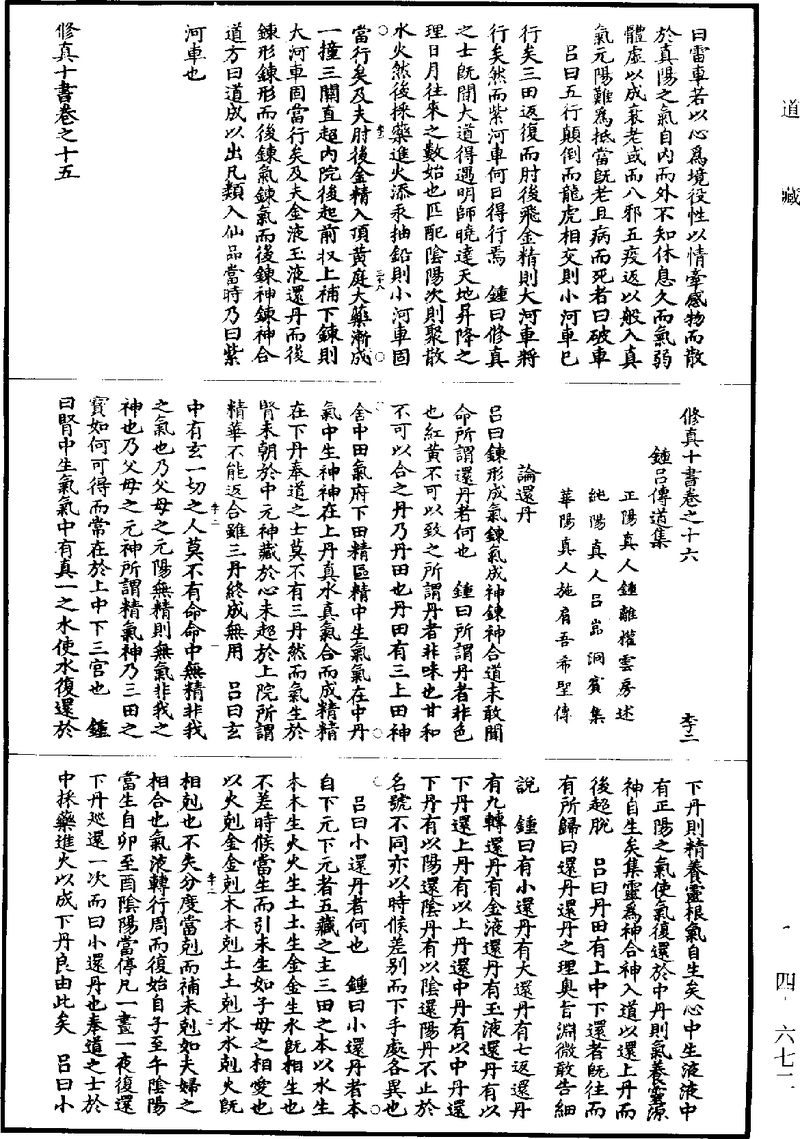 道藏
四·六七二
曰雷車若以心爲境役性以情牽感物而散
於真陽之氣自內而外不知休息久而氣弱
體虛以成衰老或而八邪五疫返以般入真
氣元陽難爲抵當既老且病而死者曰破車
呂曰五行顛倒而龍虎相交則小河車已
行矣三田返復而肘後飛金精則大河車將
行矣然而紫河車何日得行焉　鍾曰修真
之士既聞大道得遇明師曉達天地昇降之
理日月往來之數始也匹配陰陽次則聚散
水火然後採藥進火添汞抽鉛則小河車固
當行矣及夫肘後金精入頂黃庭大藥漸成
一撞三關直超內院後起前收上補下鍊則
大河車固當行矣及夫金液玉液還丹而後
鍊形鍊形而後鍊氣鍊氣而後鍊神鍊神合
道方曰道成以出凡類入仙品當時乃曰紫
河車也
修真十書卷之十五
修真十書卷之十六　李二
鍾呂傳道集
正陽真人鍾離權雲房述
純陽真人呂嵓洞賓集
華陽真人施肩吾希聖傳
論還丹
呂曰鍊形成氣鍊氣成神鍊神合道未敢聞
命所謂還丹者何也　鍾曰所謂丹者非色
也紅黃不可以致之所謂丹者非味也甘和
不可以合之丹乃丹田也丹田有三上田神
舍中田氣府下田精區精中生氣氣在中丹
氣中生神神在上丹真水真氣合而成精精
在下丹奉道之士莫不有三丹然而氣生於
腎未朝於中元神藏於心未超於上院所謂
精華不能返合雖三丹終成無用　呂曰玄
中有玄一切之人莫不有命命中無精非我
之氣也乃父母之元陽無精則無氣非我之
神也乃父母之元神所謂精氣神乃三田之
寳如何可得而常在於上中下三宮也　鍾
曰腎中生氣氣中有真一之水使水復還於
下丹則精養靈根氣自生矣心中生液液中
有正陽之氣使氣復還於中丹則氣養靈源
神自生矣集靈爲神合神入道以還上丹而
後超脫　呂曰丹田有上中下還者既往而
有所歸曰還丹還丹之理奧旨淵微敢告細
說　鍾曰有小還丹有大還丹有七返還丹
有九轉還丹有金液還丹有玉液還丹有以
下丹還上丹有以上丹還中丹有以中丹還
下丹有以陽還陰丹有以陰還陽丹不止於
名號不同亦以時候差別而下手處各異也
呂曰小還丹者何也　鍾曰小還丹者本
自下元下元者五藏之主三田之本以水生
木木生火火生土土生金金生水既相生也
不差時候當生而引未生如子母之相愛也
以火剋金金剋木木剋土土剋水水剋火既
相剋也不失分度當剋而補未剋如夫婦之
相合也氣液轉行周而復始自子至午陰陽
當生自卯至酉陰陽當停凡一晝一夜復還
下丹巡還一次而曰小還丹也奉道之士於
中採藥進火以成下丹良由此矣　呂曰小